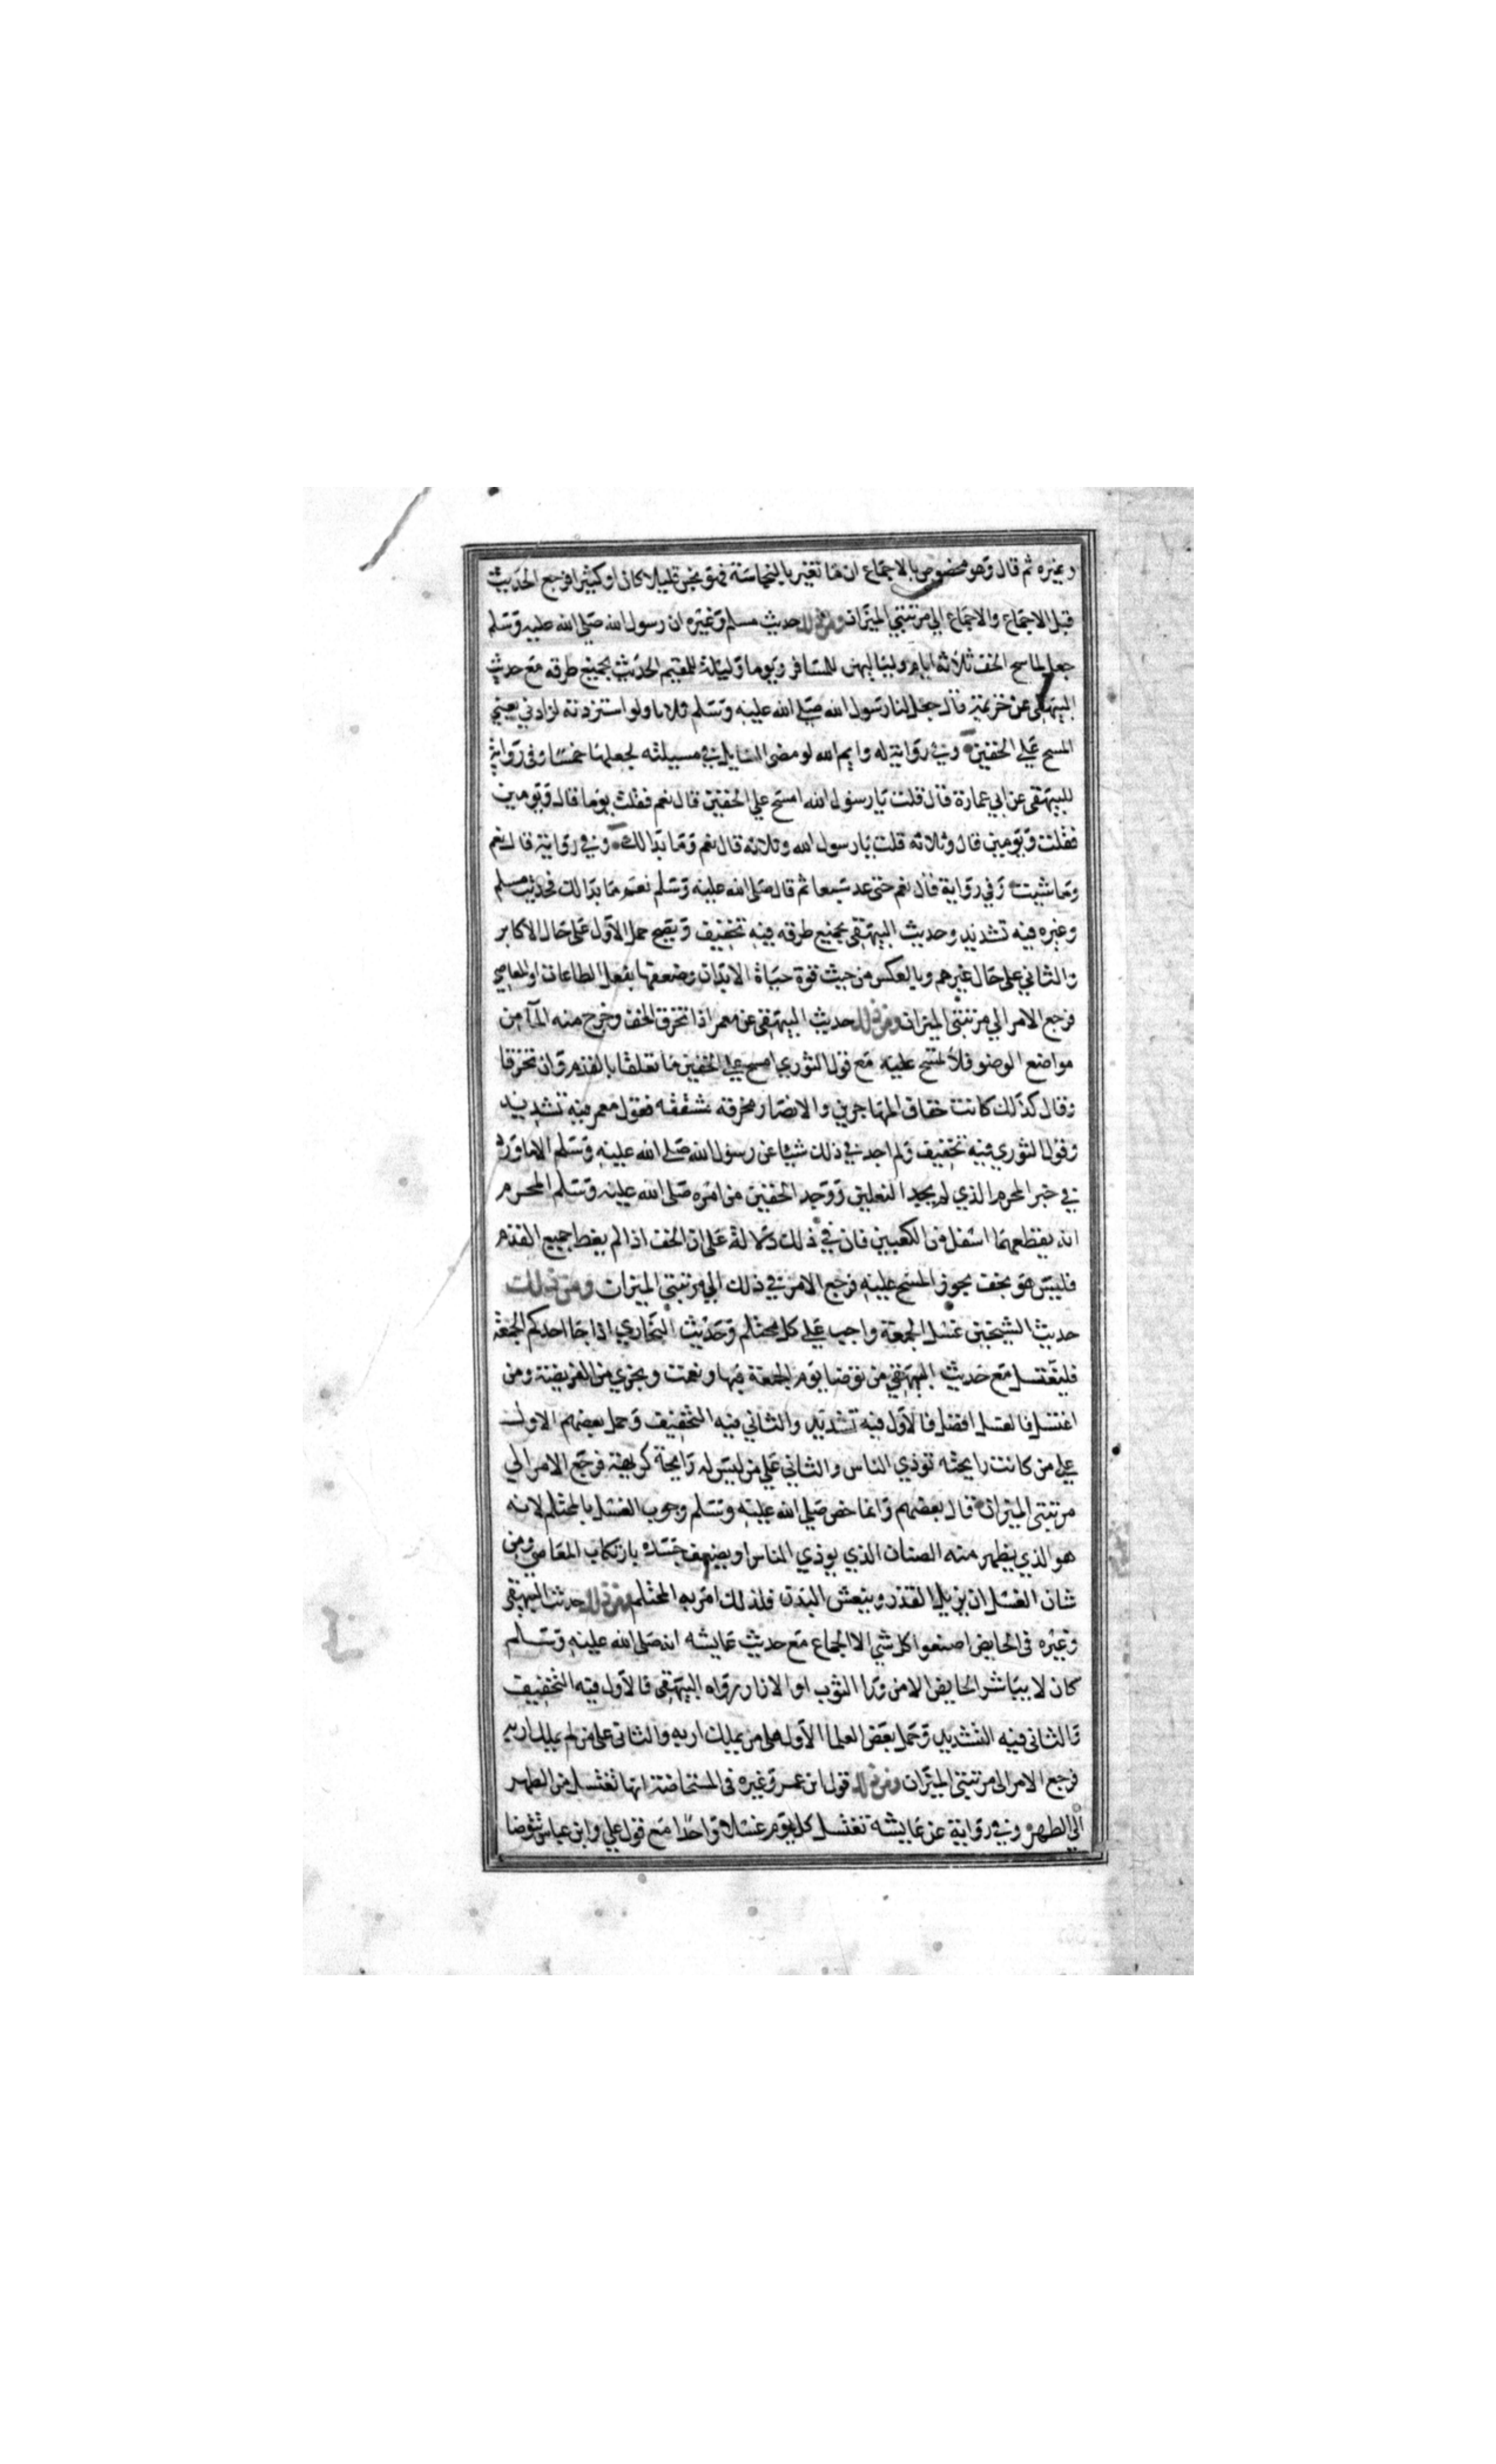 وغيره ثم قال وهو مخصوص بالاجماع ان ما تغير بالنجاسة فهو نجس قليلا كان او كثيرا فرجع الحديث
قبل الاجماع والاجماع الي مرتبتي الميزان ومن ذلك حديث مسلم وغيره ان رسول الله صلى الله عليه وسلم
جعل لماسح الخف ثلاثة ايام ولياليهن للمسافر ويوما وليلة للمقيم الحديث بجميع طرقه مع حديث
البيهقي عن خزيمة قال جعل لنا رسول الله صلى الله عليه وسلم ثلاثا ولو استزدته لزادني يعني
المسح علي الخفين وفي رواية له وايم الله لو مضى السايل في مسيلته لجعلها خمسا وفي رواية
للبيهقي عن ابي عمارة قال قلت يا رسول الله امسح علي الخفين قال نعم فقلت يوما قال ويومين
فقلت ويومين قال وثلاثه قلت يا رسول الله وثلاثه قال نعم وما بدالك وفي رواية قال نعم
وما شيت وفي رواية قال نعم حتى عد سبعا ثم قال صلى الله عليه وسلم نعم ما بدالك فحديث مسلم
وغيره فيه تشديد وحديث البيهقي بجميع طرقه فيه تخفيف ويصح حمل الاول على حال الاكابر
والثاني على حال غيرهم وبالعكس من حيث قوة حياة الابدان وضعفها بفعل الطاعات او المعاصي
فرجع الامر الي مرتبتي الميزان ومن ذلك حديث البيهقي عن معمر اذا تخرق الخف وخرج منه المآ من
مواضع الوضو فلا تمسح عليه مع قول الثوري امسح علي الخفين ما تعلقا بالقدم وان تخرقا
وقال كذلك كانت خفاف المهاجرين والانصار مخرقه مشققه فقول معمر فيه تشديد
وقول الثوري فيه تخفيف ولم اجد في ذلك شيا عن رسول الله صلى الله عليه وسلم الا ما ورد
في خبر المحرم الذي لم يجد النعلين ووجد الخفين من امره صلى الله عليه وسلم المحرم
انه يقطعهما اسفل من الكعبين فان في ذلك دلالة على ان الخف اذا لم يغط جميع القدم
فليس هو بخف يجوز المسح عليه فرجع الامر في ذلك الي مرتبتي الميزان ومن ذلك
حديث الشيخين غسل الجمعة واجب علي كل محتلم وحديث البخاري اذا جا احدكم الجمعة
فليغتسل مع حديث البيهقي من توضا يوم الجمعة فبها ونعمت ويجزي من الفريضة ومن
اغتسل فالغسل افضل فالاول فيه تشديد والثاني فيه التخفيف وحمل بعضهم الاول
علي من كانت رايحته توذي الناس والثاني علي من ليس له رايحة كريهة فرجع الامر الي
مرتبتي الميزان قال بعضهم وانما خص صلى الله عليه وسلم وجوب الغسل بالمحتلم لانه
هو الذي يظهر منه الصنان الذي يوذي الناس او يضعف جسده بارتكاب المعاصي ومن
شان الغسل ان يزيل القذر وينعش البدن فلذلك امر به المحتلم ومن ذلك حديث البيهقي
وغيره في الحايض اصنعوا كل شي الا الجماع مع حديث عايشه انه صلى الله عليه وسلم
كان لا يباشر الحايض الا من ورا الثوب او الازار رواه البيهقي فالاول فيه التخفيف
والثاني فيه التشديد وحمل بعض العلما الاول على من يملك اربه والثاني على من لم يملك اربه
فرجع الامر الى مرتبتي الميزان ومن ذلك قول ابن عمر وغيره في المستحاضة انها تغتسل من الطهر
الي الطهر وفي رواية عن عايشه تغتسل كل يوم غسلا واحدا مع قول علي وابن عباس تتوضا